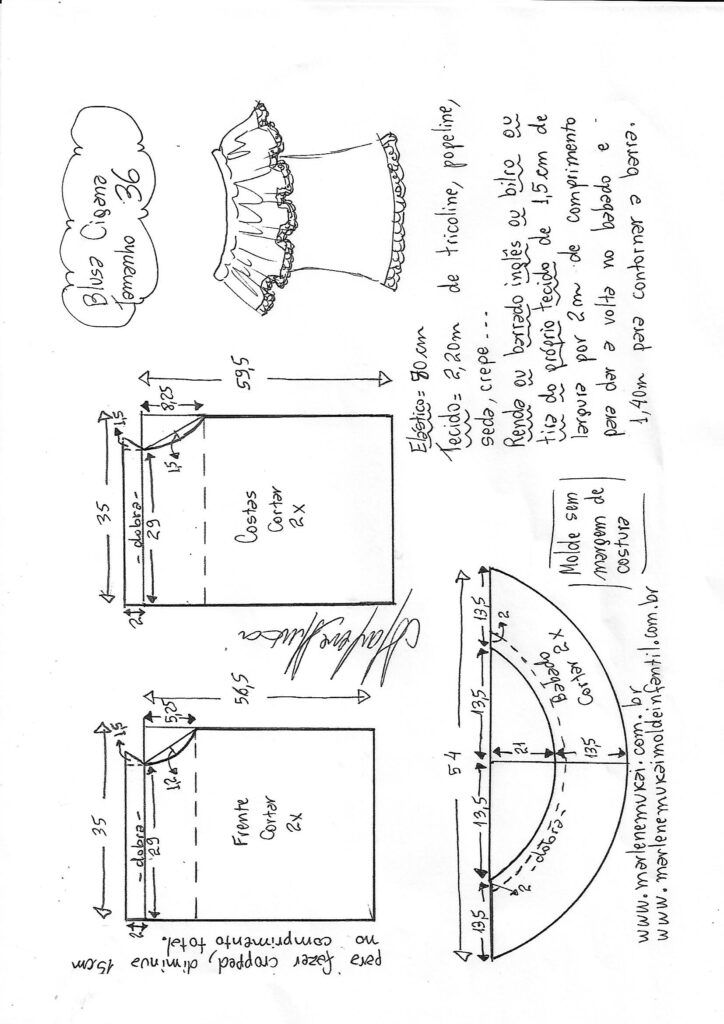 Blusa Cigana
36
tamanho
35
2
- dobra -
29
1,5
1,5
8,25
59,5
Costas
Cortar
2x
Elástico = 80 cm
Tecido = 2,20m de tricoline, popeline,
seda, crepe...
Renda ou barrado inglês ou bilro ou
tira do próprio tecido de 1,5 cm de
largura por 2m de comprimento
para dar a volta no babado e
1,40m para contornar a barra.
35
2
- dobra -
29
1,5
1,2
5,25
56,5
Frente
Cortar
2x
para fazer cropped, diminua 15cm
no comprimento total.
Marlene Mukai
54
13,5
13,5
13,5
13,5
2
2
21
13,5
- dobra -
Babado
Cortar 2x
Molde sem
margem de
costura
www.marlenemukai.com.br
www.marlenemukaimoldeinfantil.com.br